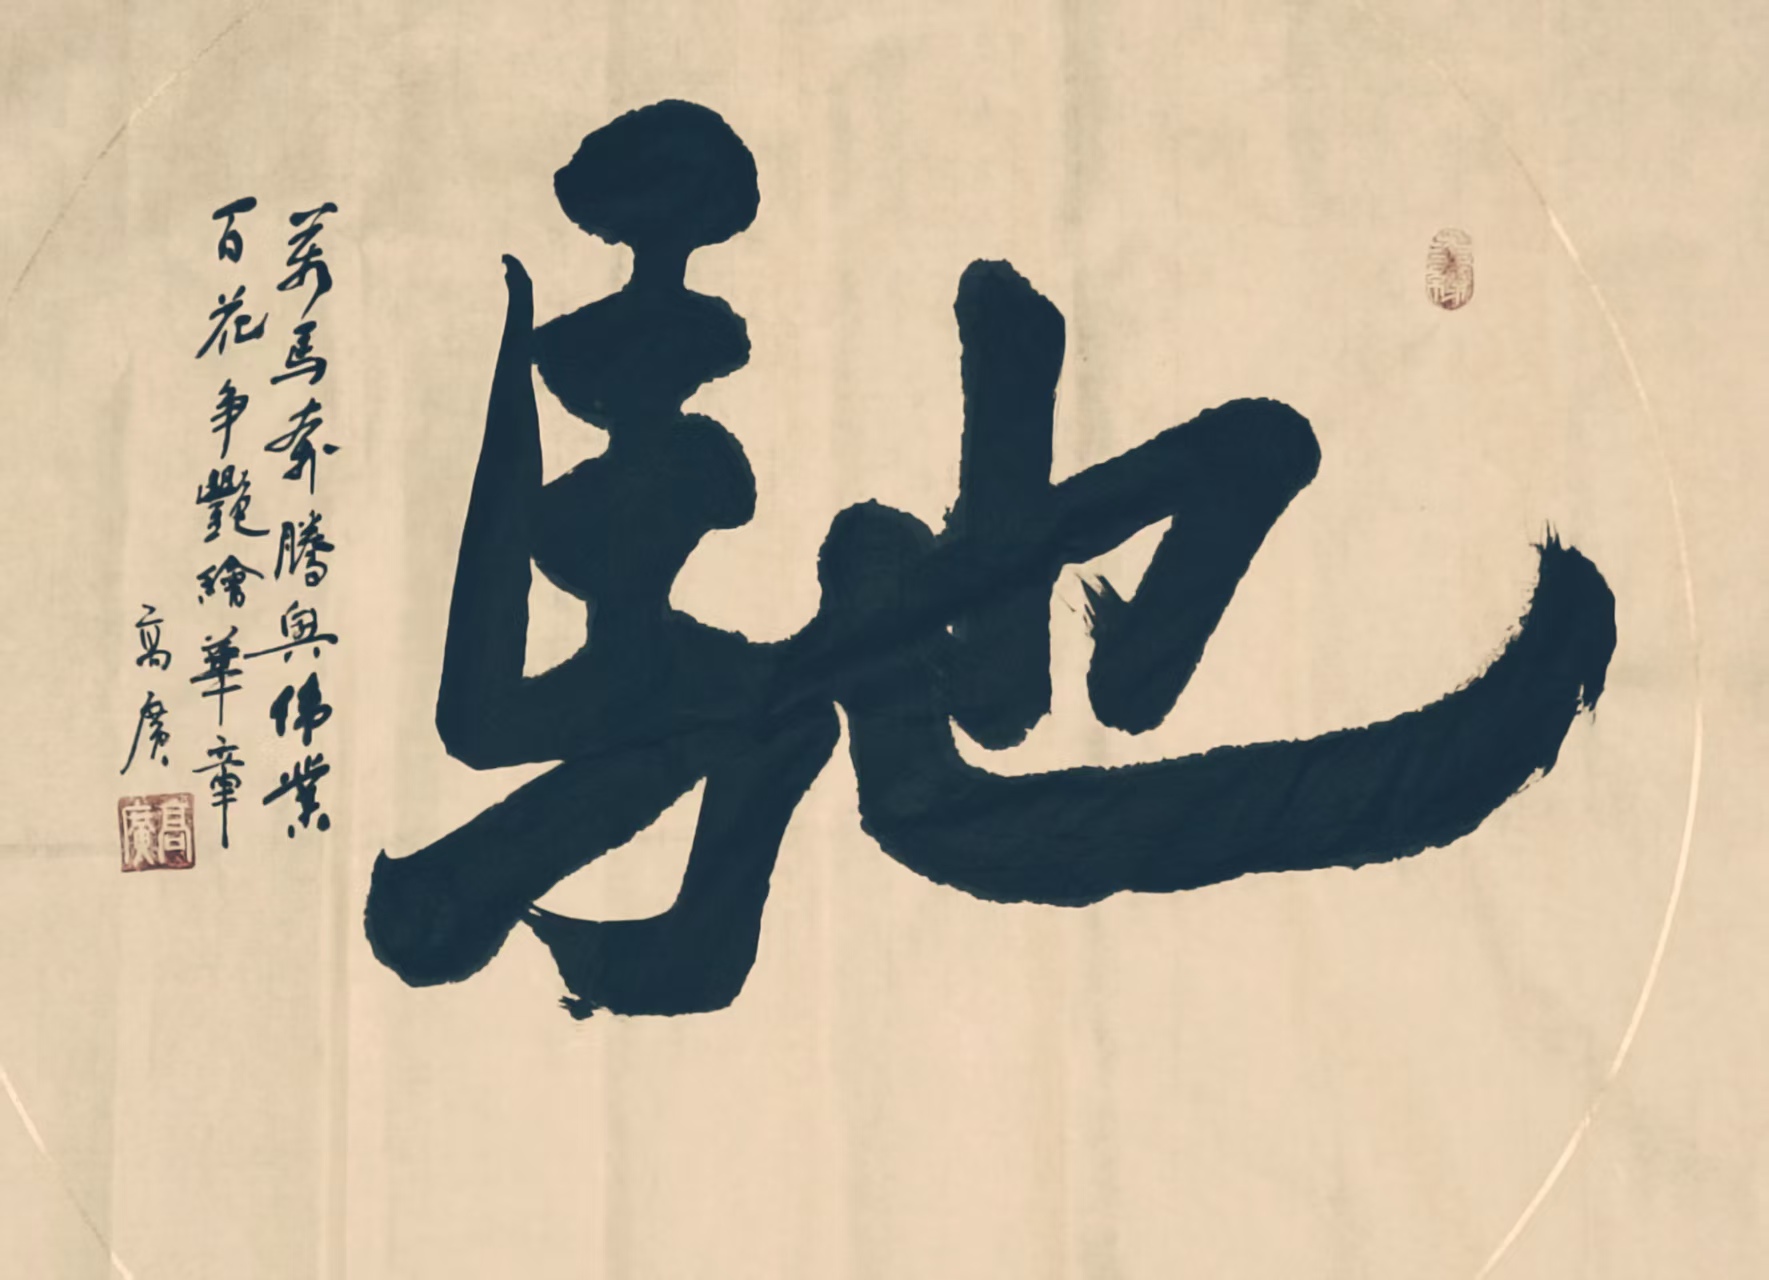 馳
萬馬奔騰興偉業
百花争艷繪華章
高廣
高廣